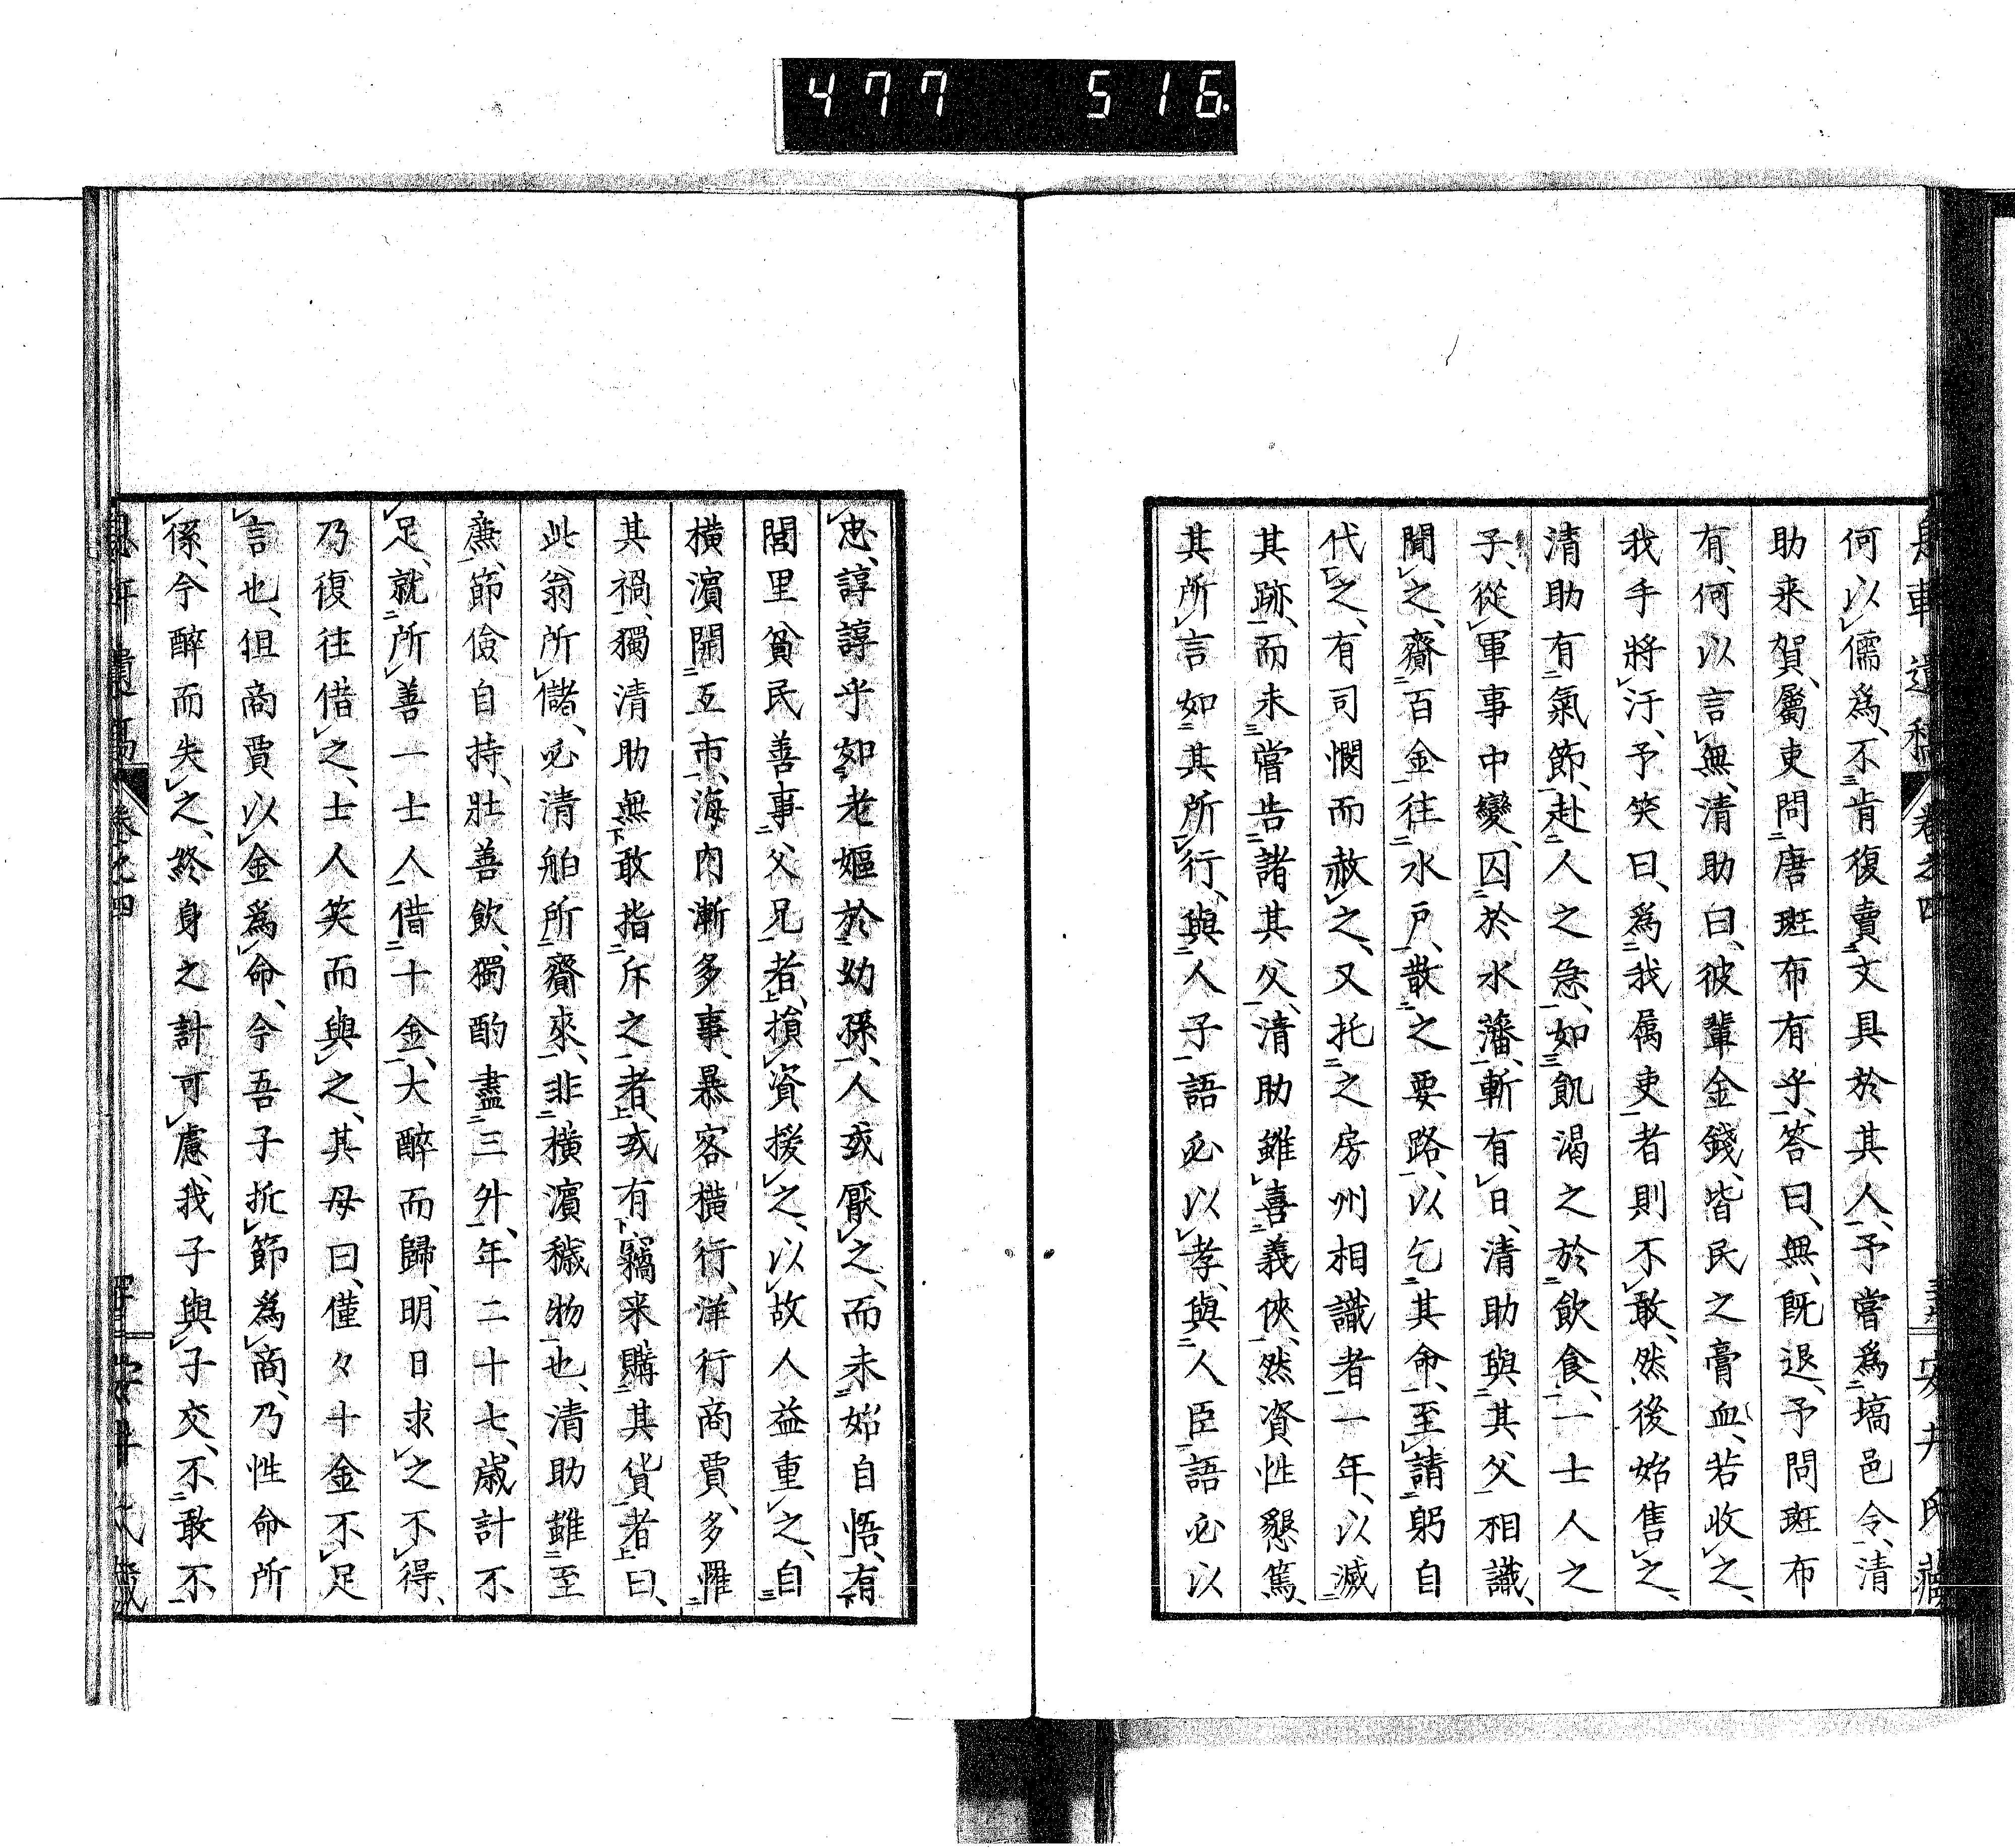 477 516
何以儒爲、不肯復賣文具於其人、予嘗爲塙邑令、清
助来賀、屬吏問唐斑布有乎、答曰、無、既退、予問斑布
有、何以言無、清助曰、彼輩金錢、皆民之膏血、若收之、
我手將汙、予笑曰、爲我属吏者則不敢、然後始售之、
清助有氣節、赴人之急、如飢渴之於飲食、一士人之
子、從軍事中變、囚於水藩、斬有日、清助與其父相識、
聞之、齎百金往水戸、散之要路、以乞其命、至請躬自
代之、有司憫而赦之、又托之房州相識者一年、以滅
其跡、而未嘗告諸其父、清助雖喜義俠、然資性懇篤、
其所言如其所行、與人子語必以孝、與人臣語必以
忠、諄諄乎如老嫗於幼孫、人或厭之、而未始自悟、有
閭里貧民善事父兄者、損資援之、以故人益重之、自
橫濱開互市、海内漸多事、暴客橫行、洋行商賈、多罹
其禍、獨清助無敢指斥之者、或有竊来購其貨者曰、
此翁所儲、必清舶所齎來、非橫濱穢物也、清助雖至
廉、節儉自持、壯善飲、獨酌盡三升、年二十七、歲計不
足、就所善一士人借十金、大醉而歸、明日求之不得、
乃復往借之、士人笑而與之、其母曰、僅々十金不足
言也、但商賈以金爲命、今吾子折節爲商、乃性命所
係、今醉而失之、終身之計可慮、我子與子交、不敢不
息軒遺稿 卷之四 安井氏藏